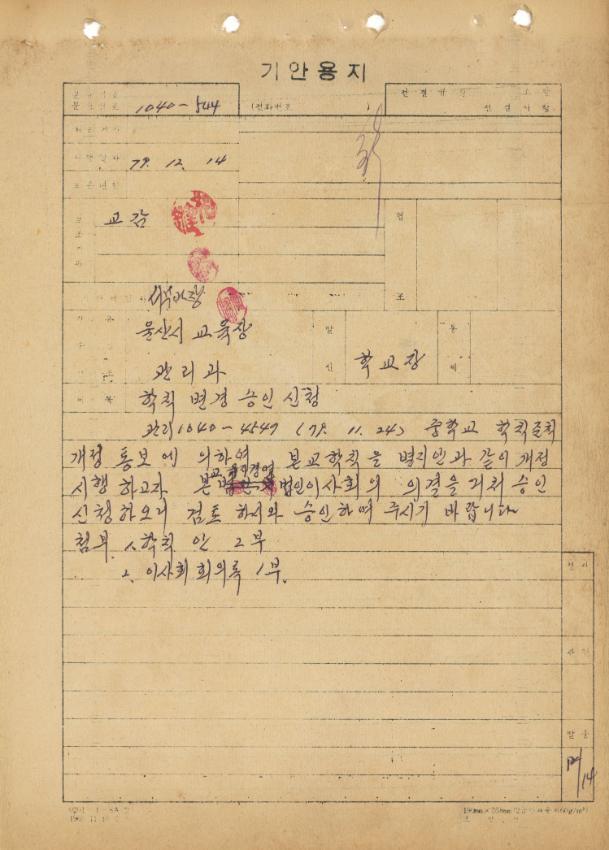 기안용지
1040-544
(전화번호 )
전결규정 조 항
전결사항
79. 12. 14
교감
협
조
서무과장
울산시 교육장
발
신
학교장
통
제
관리과
학칙 변경 승인 신청
관리1040-4547 (79. 11. 24) 중학교 학칙준칙
개정 통보에 의하여 본교학칙을 별지안과 같이 개정
시행 하고자 본교 유지경영 법인이사회의 의결을 거쳐 승인
신청하오니 검토 하시와 승인하여 주시기 바랍니다
첨부 1. 학칙 안 2부
2. 이사회 회의록 1부.
정서
발송
12/14